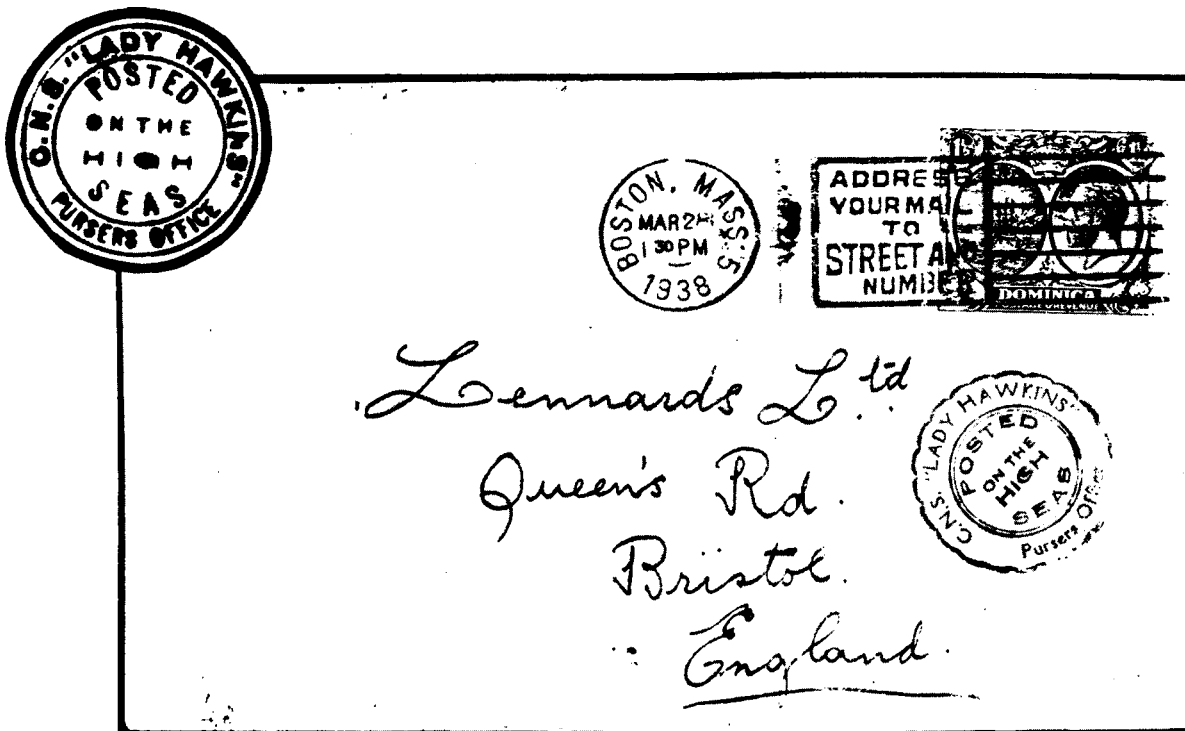 C.N.S. "LADY HAWKINS"
POSTED
ON THE
HIGH
SEAS
PURSERS OFFICE
BOSTON, MASS. 5
MAR
1 30 PM
1938
ADDRESS
YOUR MAIL
TO
STREET AND
NUMBER
DOMINICA
Lennards Ltd
Queen's Rd.
Bristol.
England.
C.N.S. "LADY HAWKINS"
POSTED
ON THE
HIGH
SEAS
Pursers Office